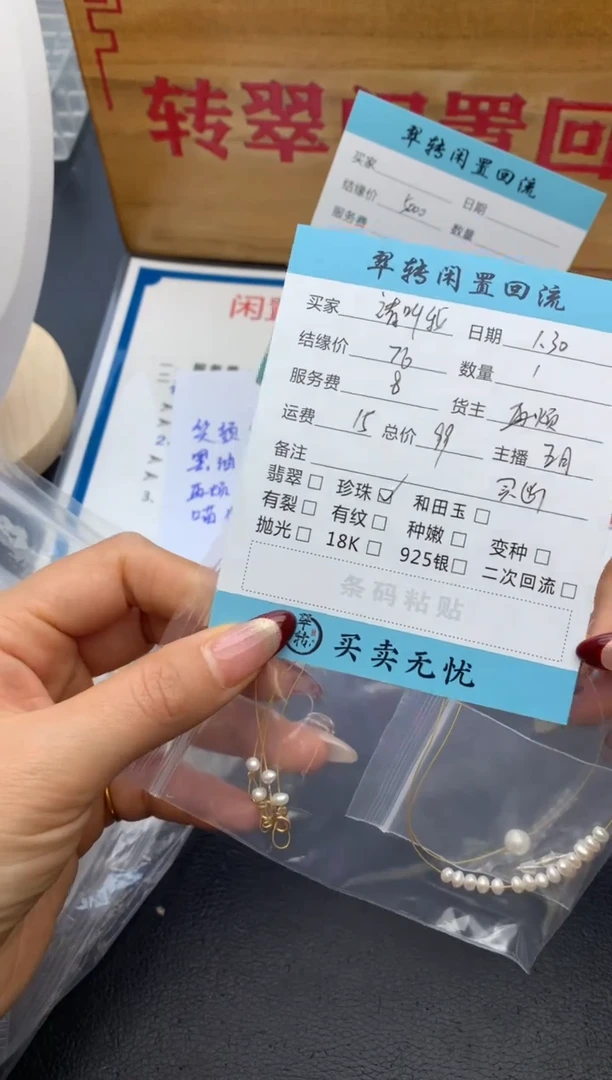 转翠闲置回
翠转闲置回流
买家 日期
结缘价 5000 数量
服务费
闲置
笑颜
翠转闲置回流
买家 请叫我 日期 1.30
结缘价 76 数量 1
服务费 8 货主 再烦
运费 15 总价 99 主播 五月
备注 买断
翡翠 珍珠 和田玉
有裂 有纹 种嫩 变种
抛光 18K 925银 二次回流
条码粘贴
翠转 买卖无忧